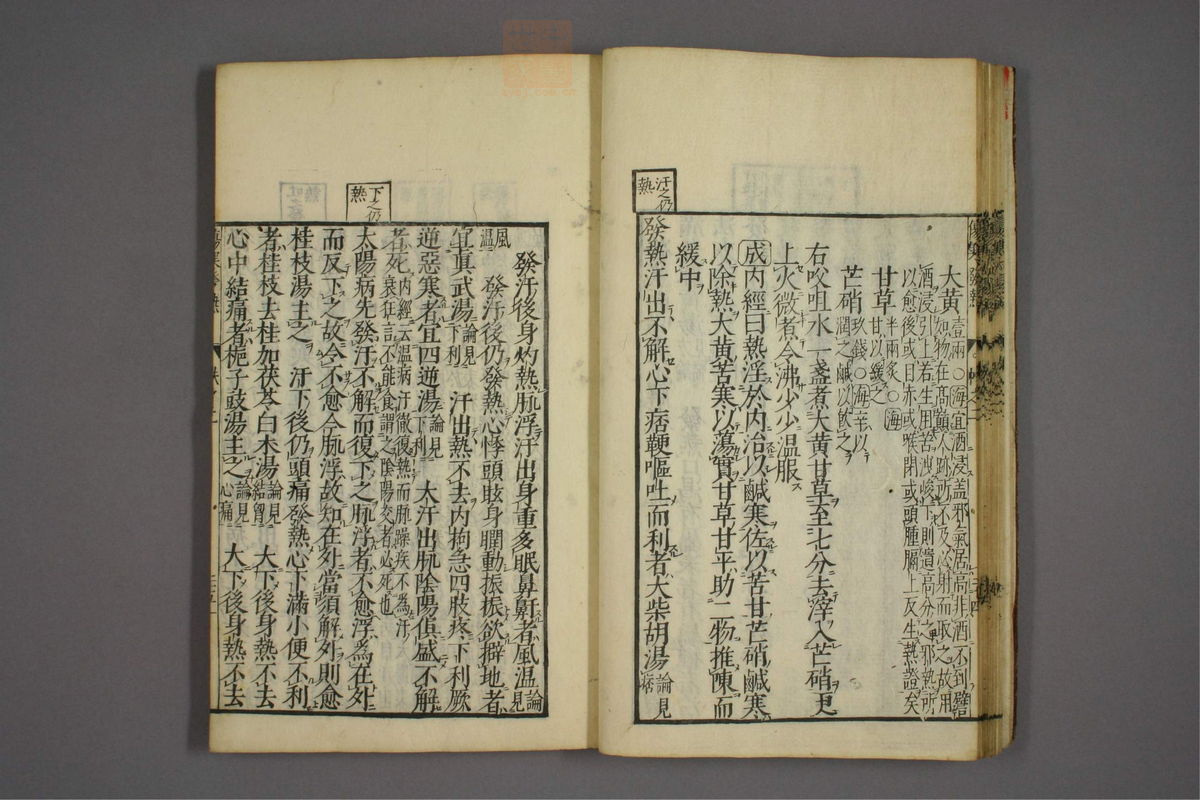 大黃 壹兩○海宜酒浸盖邪氣居高非酒不到譬
如物在高巔人跡所不及必射而取之故用
酒浸引上若生用苦泄峻下則遺高分之邪熱所
以愈後或目赤或喉閉或頭腫膈上反生熱證矣
甘草 半兩炙○海
甘以緩之
芒硝 玖錢○海辛以
潤之鹹以飲之
右㕮咀水一盞煮大黃甘草至七分去滓入芒硝更
上火微煮令沸少少温服
成內經曰熱浮於內治以鹹寒佐以苦甘芒硝鹹寒
以除熱大黃苦寒以蕩實甘草甘平助二物推陳而
緩中
汗之仍
熱
發熱汗出不解心下痞鞕嘔吐而利者大柴胡湯 論見
痞
發汗後身灼熱脉浮汗出身重多眠鼻鼾者風温 論見
風
温
發汗後仍發熱心悸頭眩身瞤動振振欲擗地者
宜真武湯 論見
下利 汗出熱不去內拘急四肢疼下利厥
逆惡寒者宜四逆湯 論見
下利 大汗出脉陰陽俱盛不解
者死 內經云温病汗徹復熱而脉躁疾不為汗
衰狂言不能食謂之陰陽交者必死也
下之仍
熱
太陽病先發汗不解而復下之脉浮者不愈浮為在外
而反下之故令不愈今脉浮故知在外當須解外則愈
桂枝湯主之 汗下後仍頭痛發熱心下滿小便不利
者桂枝去桂加茯苓白木湯 論見
結胸 大下後身熱不去
心中結痛者梔子豉湯主之 論見
心痛 大下後身熱不去